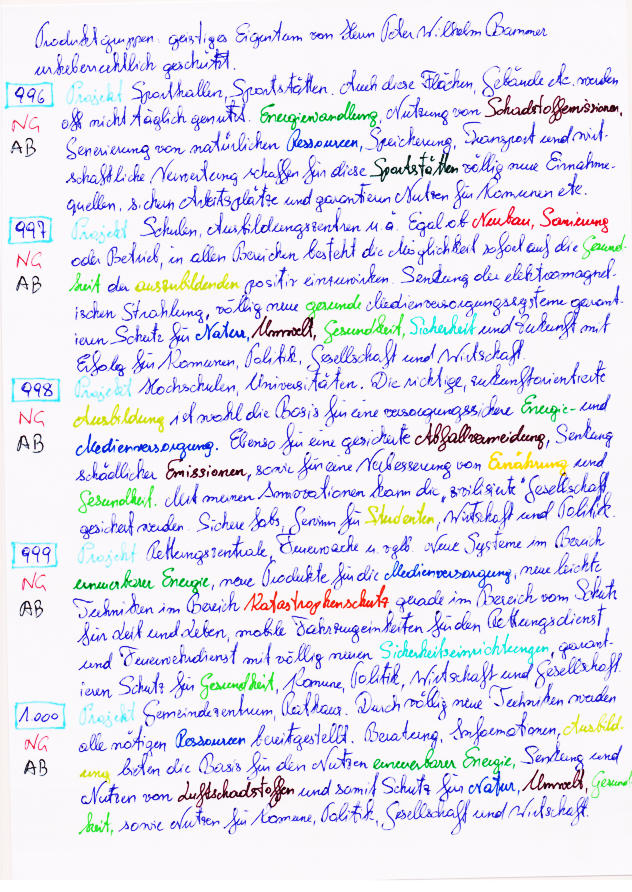 Produktgruppen: geistiges Eigentum von Herrn Peter Wilhelm Bammer
urheberrechtlich geschützt.
996 Projekt Sporthallen, Sportstätten. Auch diese Flächen, Gebäude etc. werden
NG oft nicht täglich genutzt. Energiewandlung, Nutzung von Schadstoffemissionen,
AB Generierung von natürlichen Ressourcen, Speicherung, Transport und wirt-
schaftliche Verwertung schaffen für diese Sportstätten völlig neue Einnahme-
quellen, sichern Arbeitsplätze und garantieren Nutzen für Komunen etc.
997 Projekt Schulen, Ausbildungszentren u.ä. Egal ob Neubau, Sanierung
NG oder Betrieb, in allen Bereichen besteht die Möglichkeit sofort auf die Gesund-
AB heit der auszubildenden positiv einzuwirken. Senkung der elektromagnet-
ischen Strahlung, völlig neue gesunde Medienversorgungssysteme garant-
ieren Schutz für Natur, Umwelt, Gesundheit, Sicherheit und Zukunft mit
Erfolg für Komunen, Politik, Gesellschaft und Wirtschaft.
998 Projekt Hochschulen, Universitäten. Die richtige, zukunftorientierte
NG Ausbildung ist wohl die Basis für eine versorgungssichere Energie- und
AB Medienversorgung. Ebenso für eine gesicherte Abfallvermeidung, Senkung
schädlicher Emissionen, sowie für eine Verbesserung von Ernährung und
Gesundheit. Mit meinen Innovationen kann die "zivilisierte" Gesellschaft
gesichert werden. Sichere Jobs, Gewinn für Studenten, Wirtschaft und Politik.
999 Projekt Rettungszentrale, Feuerwache u. vglb. Neue Systeme im Bereich
NG erneuerbarer Energie, neue Produkte für die Medienversorgung, neue leichte
AB Techniken im Bereich Katastrophenschutz gerade im Bereich vom Schutz
für Leib und Leben, mobile Fahrzeugeinheiten für den Rettungsdienst
und Feuerwehrdienst mit völlig neuen Sicherheitseinrichtungen, garant-
ieren Schutz für Gesundheit, Komune, Politik, Wirtschaft und Gesellschaft.
1.000 Projekt Gemeindezentrum, Rathaus. Durch völlig neue Techniken werden
NG alle nötigen Ressourcen bereitgestellt. Beratung, Informationen, Ausbild-
AB ung bieten die Basis für den Nutzen erneuerbarer Energie, Senkung und
Nutzen von Luftschadstoffen und somit Schutz für Natur, Umwelt, Gesund-
heit, sowie Nutzen für Komune, Politik, Gesellschaft und Wirtschaft.